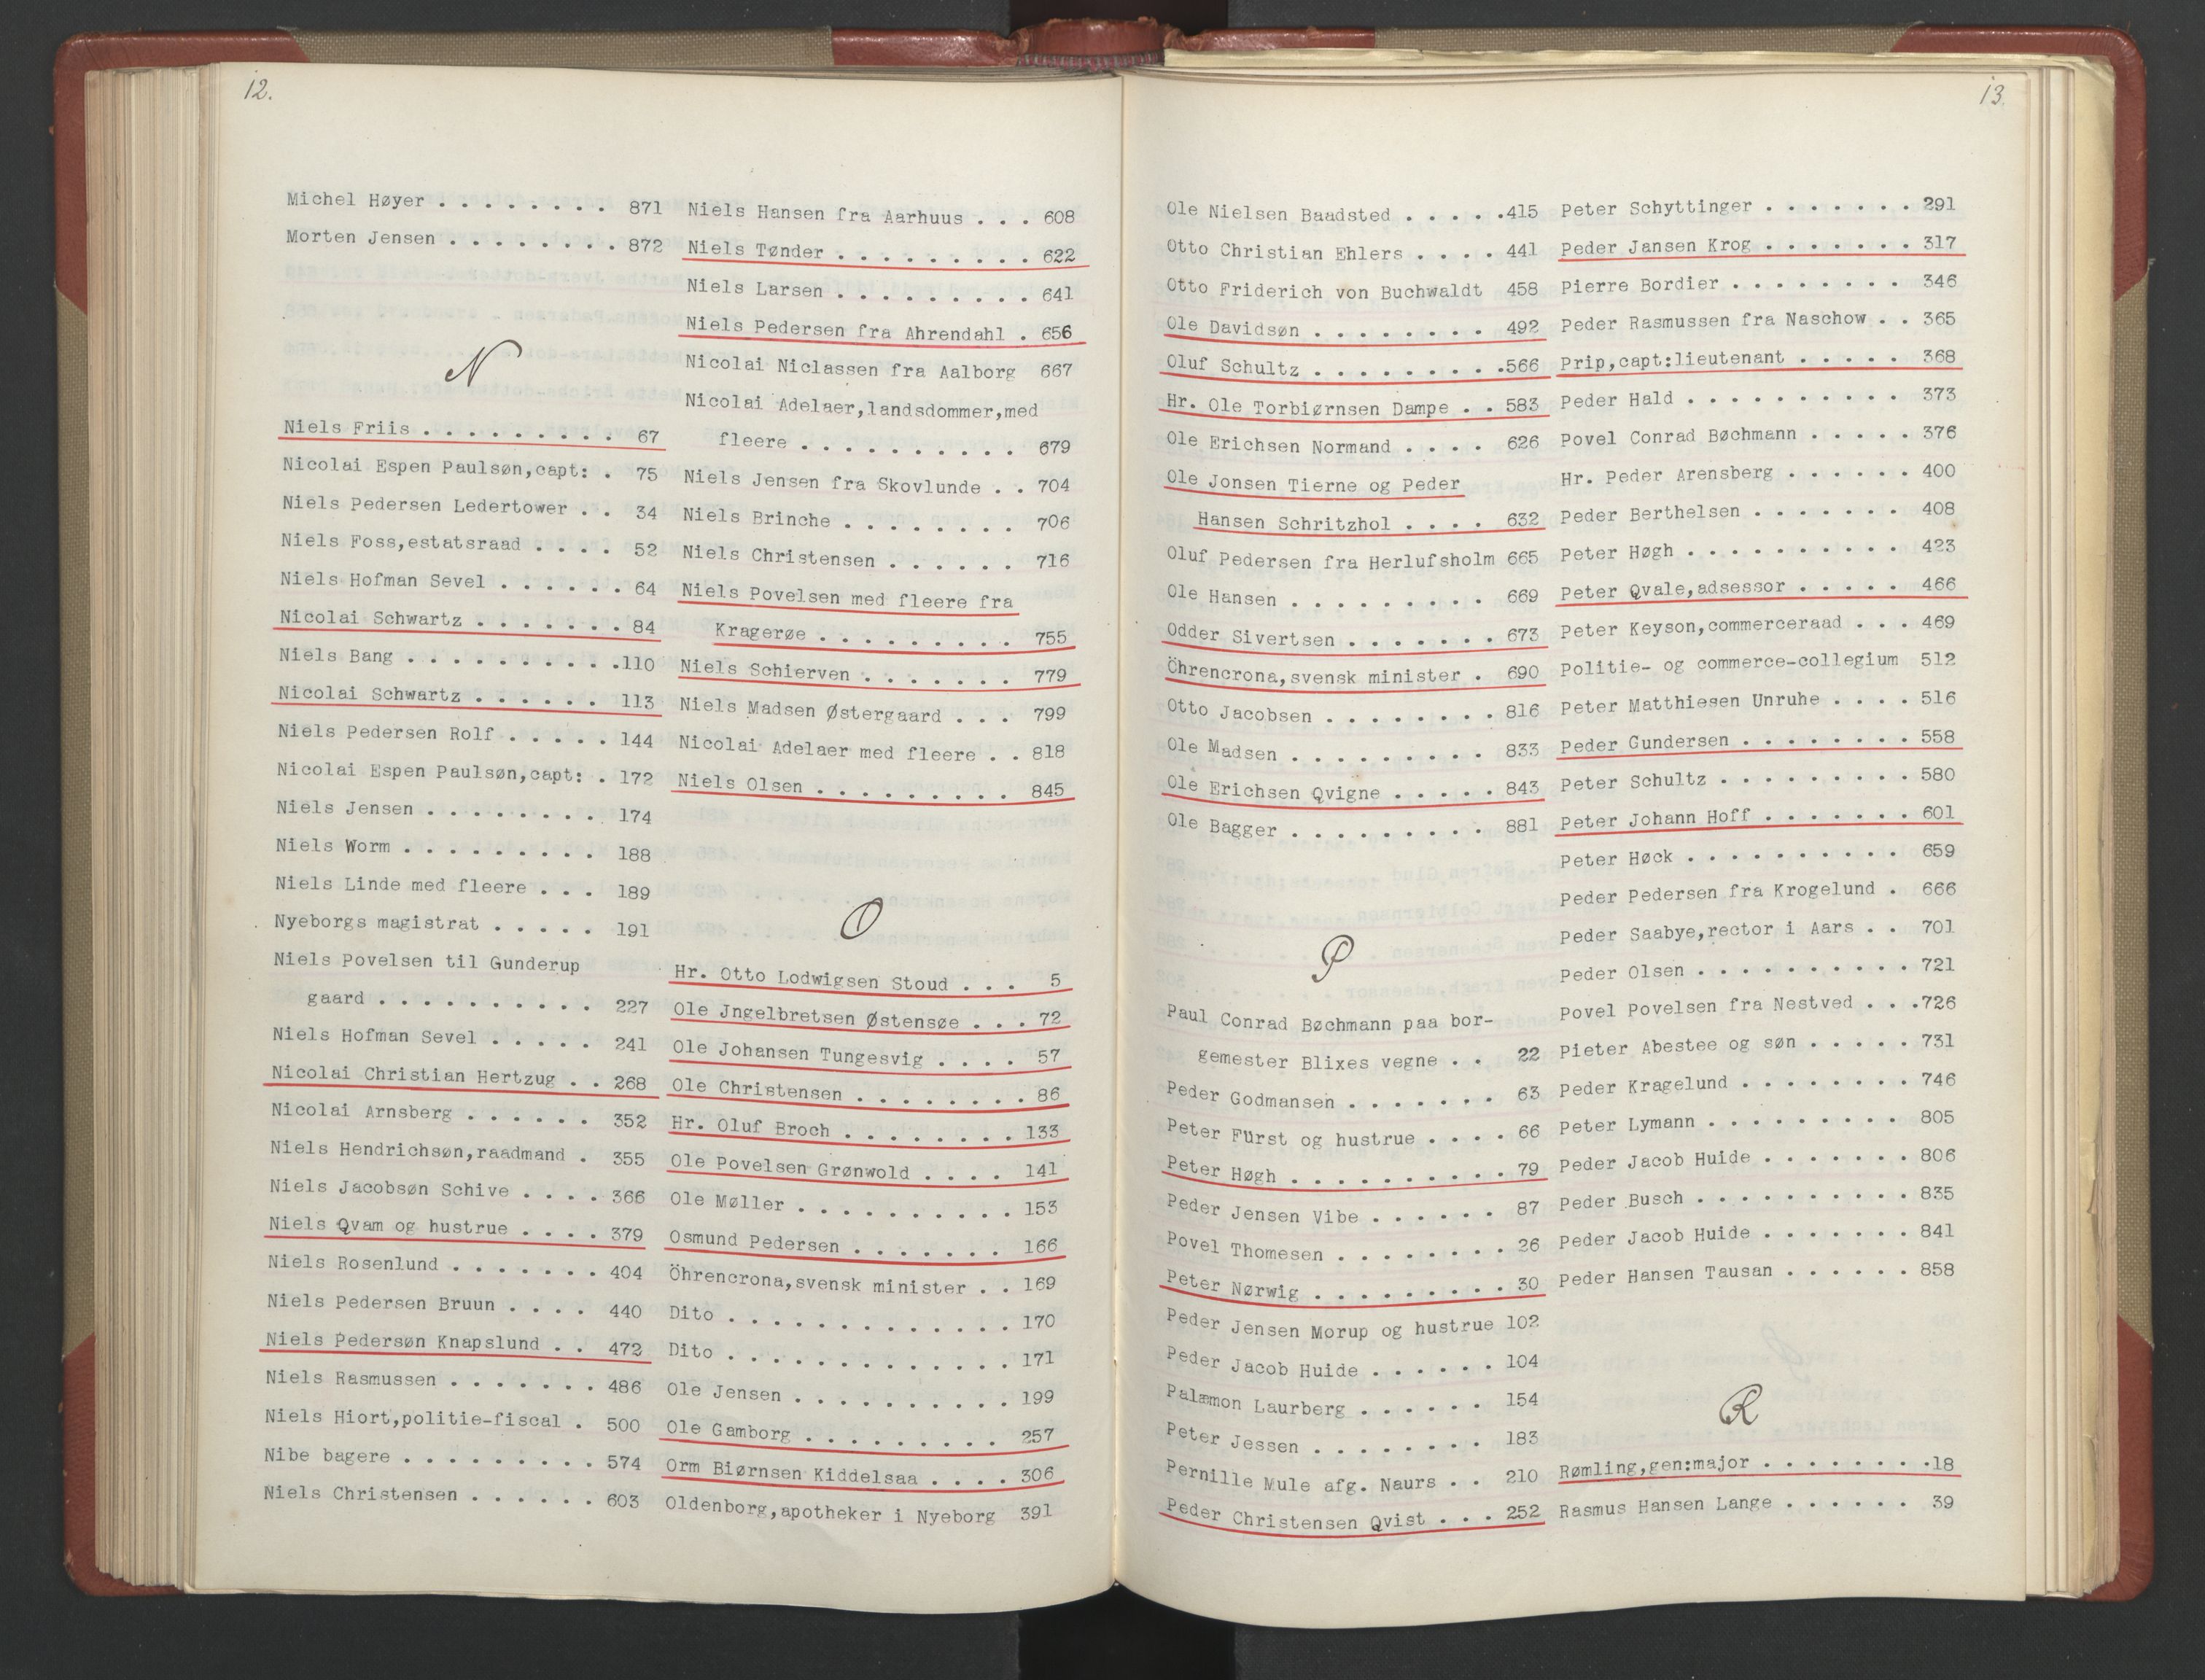 12.
Michel Høyer . . . . . . . . 871
Morten Jensen . . . . . . . . 872
N
Niels Friis . . . . . . . . . 67
Nicolai Espen Paulsøn,capt: . 75
Niels Pedersen Ledertower . . 34
Niels Foss,estatsraad . . . . 52
Niels Hofman Sevel . . . . . . 64
Nicolai Schwartz . . . . . . . 84
Niels Bang . . . . . . . . . .110
Nicolai Schwartz . . . . . . 113
Niels Pedersen Rolf . . . . . 144
Nicolai Espen Paulsøn,capt: . 172
Niels Jensen . . . . . . . . 174
Niels Worm . . . . . . . . . 188
Niels Linde med fleere . . . 189
Nyeborgs magistrat . . . . . 191
Niels Povelsen til Gunderup
gaard . . . . . . . . . . 227
Niels Hofman Sevel . . . . . 241
Nicolai Christian Hertzug . . 268
Nicolai Arnsberg . . . . . . 352
Niels Hendrichsøn,raadmand . 355
Niels Jacobsøn Schive . . . . 366
Niels Qvam og hustrue . . . . 379
Niels Rosenlund . . . . . . . 404
Niels Pedersen Bruun . . . . 440
Niels Pedersøn Knapslund . . 472
Niels Rasmussen . . . . . . . 486
Niels Hiort,politie-fiscal . 500
Nibe bagere . . . . . . . . . 574
Niels Christensen . . . . . . 603
Niels Hansen fra Aarhuus . . . 608
Niels Tønder . . . . . . . . . 622
Niels Larsen . . . . . . . . . 641
Niels Pedersen fra Ahrendahl . 656
Nicolai Niclassen fra Aalborg 667
Nicolai Adelaer,landsdommer,med
fleere . . . . . . . . . . 679
Niels Jensen fra Skovlunde . . 704
Niels Brinche . . . . . . . . 706
Niels Christensen . . . . . . 716
Niels Povelsen med fleere fra
Kragerøe . . . . . . . . . 755
Niels Schierven . . . . . . . 779
Niels Madsen Østergaard . . . 799
Nicolai Adelaer med fleere . . 818
Niels Olsen . . . . . . . . . 845
O
Hr. Otto Lodwigsen Stoud . . . 5
Ole Jngelbretsen Østensøe . . . 72
Ole Johansen Tungesvig . . . . 57
Ole Christensen . . . . . . . . 86
Hr. Oluf Broch . . . . . . . . 133
Ole Povelsen Grønwold . . . . 141
Ole Møller . . . . . . . . . . 153
Osmund Pedersen . . . . . . . 166
Öhrencrona,svensk minister . . 169
Dito . . . . . . . . . . . . . 170
Dito . . . . . . . . . . . . . 171
Ole Jensen . . . . . . . . . . 199
Ole Gamborg . . . . . . . . . 257
Orm Biørnsen Kiddelsaa . . . . 306
Oldenborg,apotheker i Nyeborg 391
13.
Ole Nielsen Baadsted . . . . .415
Otto Christian Ehlers . . . . 441
Otto Friderich von Buchwaldt 458
Ole Davidsøn . . . . . . . . 492
Oluf Schultz . . . . . . . . .566
Hr. Ole Torbiørnsen Dampe . . 583
Ole Erichsen Normand . . . . 626
Ole Jonsen Tierne og Peder
Hansen Schritzhol . . . . 632
Oluf Pedersen fra Herlufsholm 665
Ole Hansen . . . . . . . . . 669
Odder Sivertsen . . . . . . . 673
Öhrencrona,svensk minister . 690
Otto Jacobsen . . . . . . . . 816
Ole Madsen . . . . . . . . . 833
Ole Erichsen Qvigne . . . . . 843
Ole Bagger . . . . . . . . . 881
P
Paul Conrad Bøchmann paa bor-
gemester Blixes vegne . . 22
Peder Godmansen . . . . . . . 63
Peter Furst og hustrue . . . . 66
Peter Høgh . . . . . . . . . . 79
Peder Jensen Vibe . . . . . . 87
Povel Thomesen . . . . . . . . 26
Peter Nørwig . . . . . . . . . 30
Peder Jensen Morup og hustrue 102
Peder Jacob Huide . . . . . . 104
Palæmon Laurberg . . . . . . 154
Peter Jessen . . . . . . . . 183
Pernille Mule afg. Naurs . . 210
Peder Christensen Qvist . . . 252
Peter Schyttinger . . . . . . . 291
Peder Jansen Krog . . . . . . . 317
Pierre Bordier . . . . . . . . 346
Peder Rasmussen fra Naschow . . 365
Prip,capt:lieutenant . . . . . 368
Peder Hald . . . . . . . . . . 373
Povel Conrad Bøchmann . . . . . 376
Hr. Peder Arensberg . . . . . . 400
Peder Berthelsen . . . . . . . 408
Peter Høgh . . . . . . . . . . 423
Peter Qvale,adsessor . . . . . 466
Peter Keyson,commerceraad . . . 469
Politie- og commerce-collegium 512
Peter Matthiesen Unruhe . . . . 516
Peder Gundersen . . . . . . . . 558
Peter Schultz . . . . . . . . . 580
Peter Johann Hoff . . . . . . . 601
Peter Høck . . . . . . . . . . 659
Peder Pedersen fra Krogelund . 666
Peder Saabye,rector i Aars . . 701
Peder Olsen . . . . . . . . . . 721
Povel Povelsen fra Nestved . . .726
Pieter Abestee og søn . . . . . 731
Peder Kragelund . . . . . . . . 746
Peter Lymann . . . . . . . . . 805
Peder Jacob Huide . . . . . . . 806
Peder Busch . . . . . . . . . . 835
Peder Jacob Huide . . . . . . . 841
Peder Hansen Tausan . . . . . . 858
R
Rømling,gen:major . . . . . . . .18
Rasmus Hansen Lange . . . . . . 39